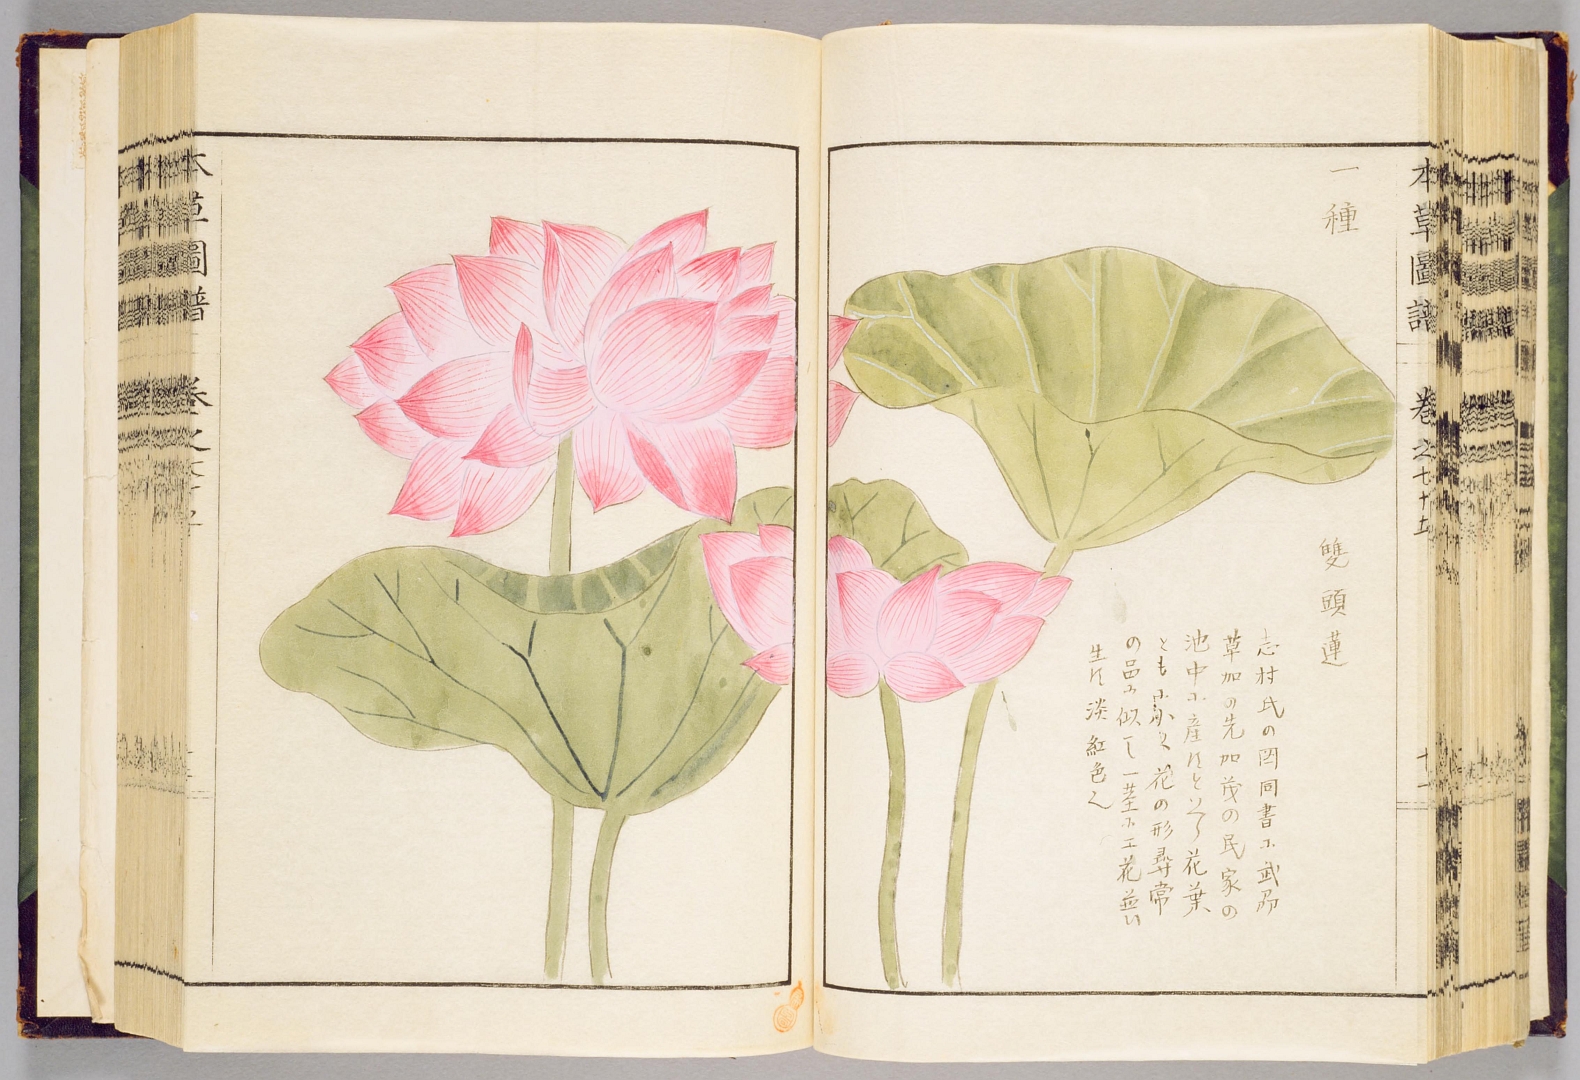 本草圖譜 卷之七十五
十一
一種
雙頭蓮
志村氏の図同書ニ武州
草加の先加茂の民家の
池中ニ産すといふ花葉
ともニ小く花の形尋常
の品ニ似て一茎ニ二花並ひ
生す淡紅色也
本草圖譜 卷之